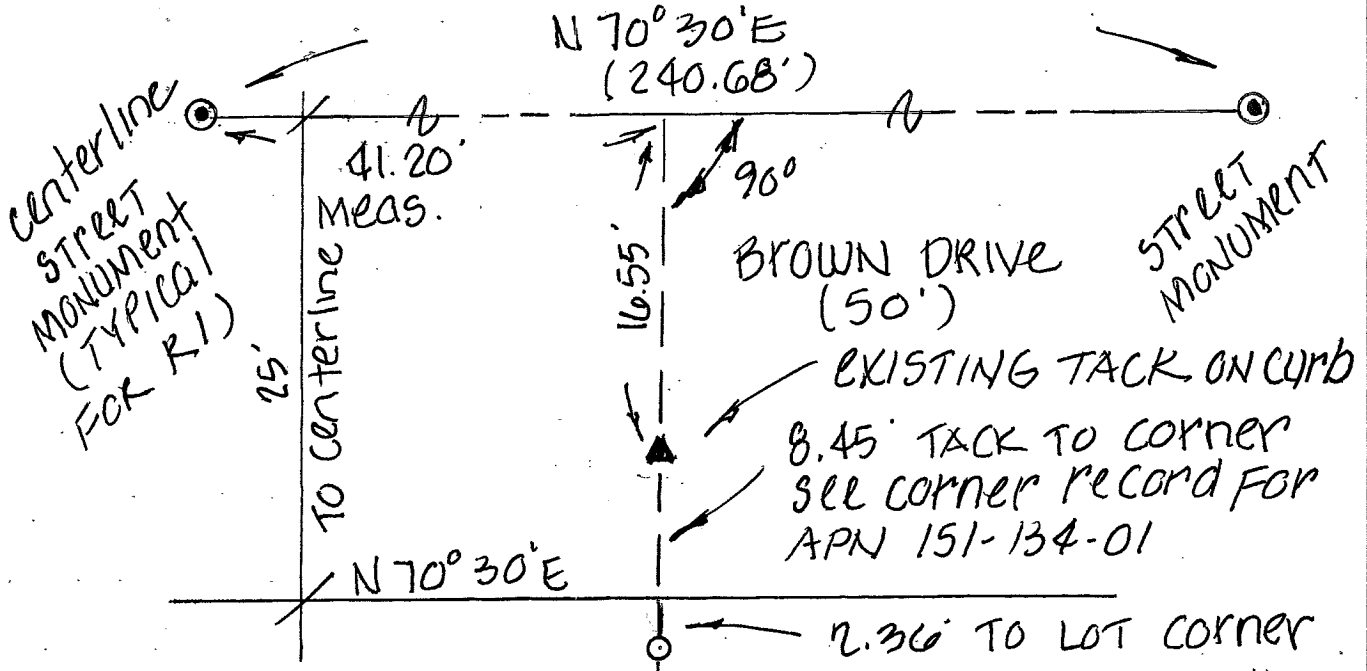 N 70° 30' E
(240.68')
centerline
STREET
MONUMENT
(TYPICAL
FOR R1)
41.20'
Meas.
90°
STREET
MONUMENT
25'
TO centerline
16.55'
BROWN DRIVE
(50')
EXISTING TACK ON CURB
8.45' TACK TO CORNER
SEE CORNER RECORD FOR
APN 151-134-01
N 70° 30' E
2.36' TO LOT CORNER